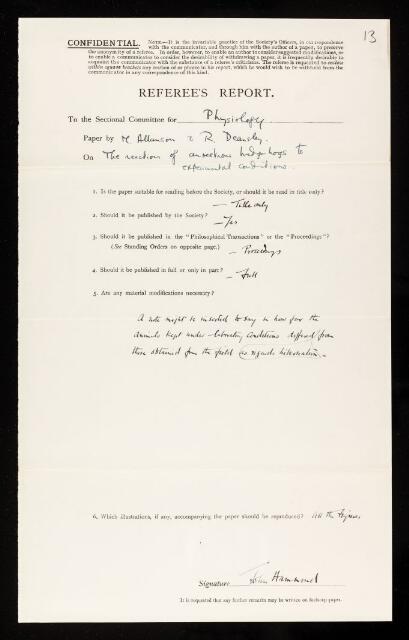 13
CONFIDENTIAL. NOTE.—It is the invariable practice of the Society's Officers, in correspondence
with the communicator, and through him with the author of a paper, to preserve
the anonymity of a referee. In order, however, to enable an author to consider suggested modifications, or
to enable a communicator to consider the desirability of withdrawing a paper, it is frequently desirable to
acquaint the communicator with the substance of a referee's criticisms. The referee is requested to enclose
within brackets any section of or phrase in his report, which he would wish to be withheld from the
communicator in any correspondence of this kind.
REFEREE'S REPORT.
To the Sectional Committee for Physiology.
Paper by M Allanson & R. Deansley.
On The reaction of anoestrous hedgehogs to
experimental conditions.
1. Is the paper suitable for reading before the Society, or should it be read in title only?
— Title only
2. Should it be published by the Society?
— Yes
3. Should it be published in the "Philosophical Transactions" or the "Proceedings"?
(See Standing Orders on opposite page.) — Proceedings
4. Should it be published in full or only in part?
— Full
5. Are any material modifications necessary?
A note might be inserted to say in how far the
animals kept under laboratory conditions differed from
those obtained from the field (as regards hibernation.—
6. Which illustrations, if any, accompanying the paper should be reproduced? All the figures
Signature John Hammond
It is requested that any further remarks may be written on foolscap paper.